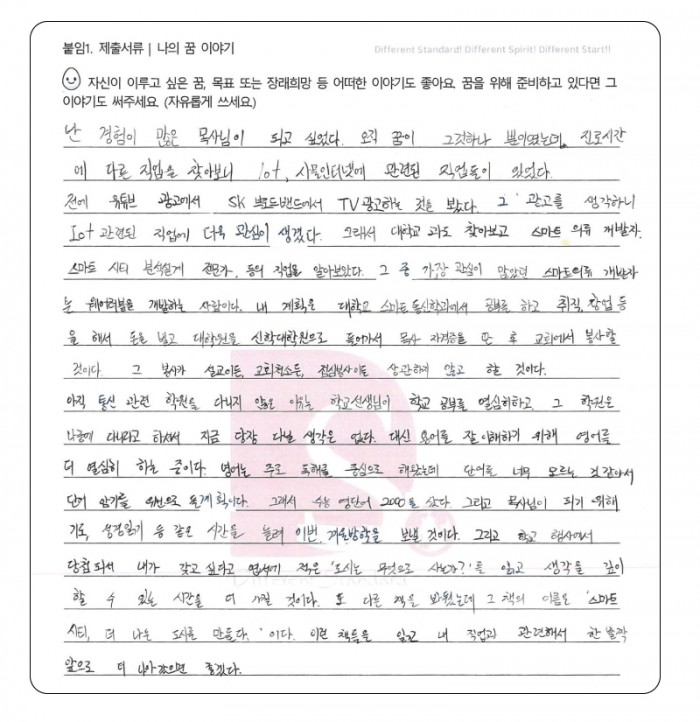 붙임1. 제출서류 | 나의 꿈 이야기
Different Standard! Different Spirit! Different Start!!
자신이 이루고 싶은 꿈, 목표 또는 장래희망 등 어떠한 이야기도 좋아요. 꿈을 위해 준비하고 있다면 그
이야기도 써주세요. (자유롭게 쓰세요.)
난 경험이 많은 목사님이 되고 싶었다. 오직 꿈이 그것하나 뿐이였는데, 진로시간
에 다른 직업을 찾아보니 Iot, 사물인터넷에 관련된 직업들이 있었다.
전에 유튜브 광고에서 SK 브로드밴드에서 TV광고하는 것을 봤다. 그 광고를 생각하니
Iot 관련된 직업에 더욱 관심이 생겼다. 그래서 대학교 과도 찾아보고 스마트 의류 개발자,
스마트 시티 분석설계 전문가, 등의 직업을 알아보았다. 그 중 가장 관심이 많았던 스마트의류 개발자
는 웨어러블을 개발하는 사람이다. 내 계획은 대학교 스마트통신학과에서 공부를 하고 취직, 창업 등
을 해서 돈을 벌고 대학원을 신학대학원으로 들어가서 목사 자격증을 딴 후 교회에서 봉사할
것이다. 그 봉사가 설교이든, 교회청소든, 점심봉사이든 상관하지 않고 할 것이다.
아직 통신 관련 학원을 다니지 않은 이유는 학교선생님이 학교 공부를 열심히하고, 그 학원은
나중에 다니라고 하셔서 지금 당장 다닐 생각은 없다. 대신 용어를 잘 이해하기 위해 영어를
더 열심히 하는 중이다. 영어는 주로 독해를 중심으로 해왔는데 단어를 너무 모르는 것 같아서
단어 암기를 위주로 할 계획이다. 그래서 수능 영단어 2000을 샀다. 그리고 목사님이 되기 위해
기도, 성경읽기 등 같은 시간을 늘려 이번 겨울방학을 보낼 것이다. 그리고 학교 행사에서
당첨되서 내가 갖고 싶다고 엽서에 적은 '도시는 무엇으로 사는가?'를 읽고 생각을 깊이
할 수 있는 시간을 더 가질 것이다. 또 다른 책을 봐왔는데 그 책의 이름은 '스마트
시티, 더 나은 도시를 만들다.'이다. 이런 책들을 읽고 내 직업과 관련해서 한 발짝
앞으로 더 나아갔으면 좋겠다.
Different Standard